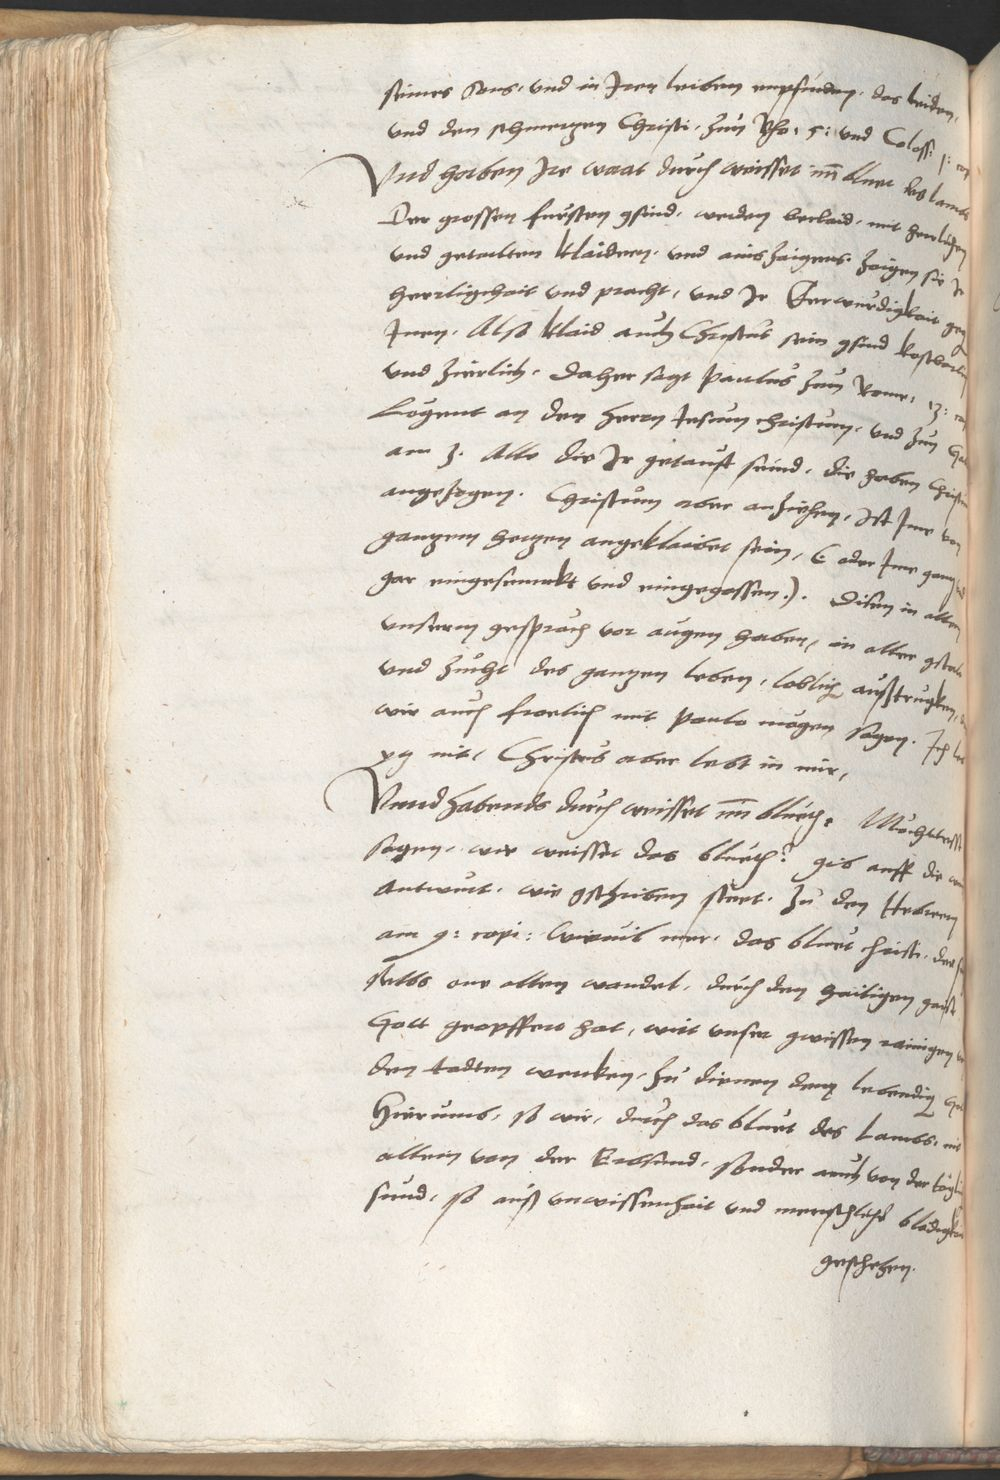 seines Sons, und in Iren leiben empfinden, das leiden,
und den schmerzen Christi, zun Pho: 5: und Coloss: 1: cap
Und haben Ire waat durch weisset im bluet des lambs
Der grossen fursten gsind, werden beclaid, mit herrlichen
und getailten klaidern, und ains zaigens zaigen sie Ir
herrligkait und pracht, und Ir Eerwurdigkait geg
Inen. Also klaid auch Christus sein gsind kostbarlich
und zierlich. Daher sagt Paulus zun Rome: 13: cap
Legent an den herrn Jesum christum, und zun Gal
am 3. Alle die Ir getauft seind, die haben Christum
angezogen. Christum aber anziehen, ist Ime von
ganzem herzen angeklaibet sein, (oder Ime ganz und
gar eingesennckt und eingegossen.). Disen in allem
unserm gesprach vor augen haben, in aller gstalt
und zucht des ganzen leben, loblich außtrugken, das
wir auch froelich mit Paulo mögen sagen. Ich leb
yz nit, Christus aber lebt in mir,
Unnd habends durch weisset im blueth: Möchtest
sagen, wie weisset das blueth? gib auff die
antwurt, wie gschriben steet. zu den Hebreern
am 9: capi: wievil mer, das bluet christi, der sich
selbs one allen wandel, durch den hailigen gaist
Gott geopffert hat, wirt unser gwissen rainigen von
den todten wercken, zu dienen dem lebendig Got
Hierumb, so wir, durch das bluet des Lambs, nit
allein von der Erbsund, sonder auch von der täglich
sund, so auß unwissenhait und menschlicher blödigkait
geschehen.